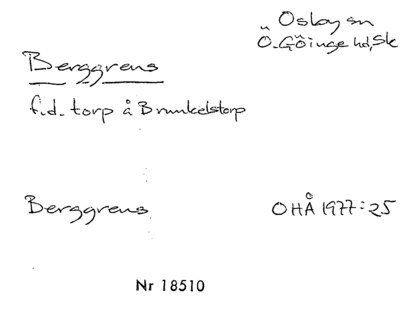 Osby sn
Ö. Göinge hd, Sk
Berggrens
f.d. torp å Brunkelstorp
Berggrens
OHÅ 1977:25
Nr 18510